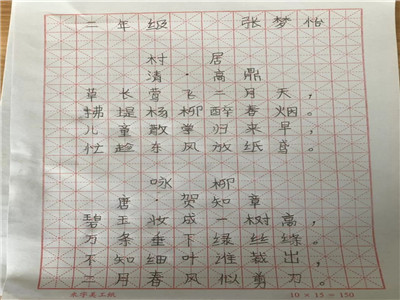 二年级 张梦怡
村居
清·高鼎
草长莺飞二月天，
拂堤杨柳醉春烟。
儿童散学归来早，
忙趁东风放纸鸢。
咏柳
唐·贺知章
碧玉妆成一树高，
万条垂下绿丝绦。
不知细叶谁裁出，
二月春风似剪刀。
10×15=150